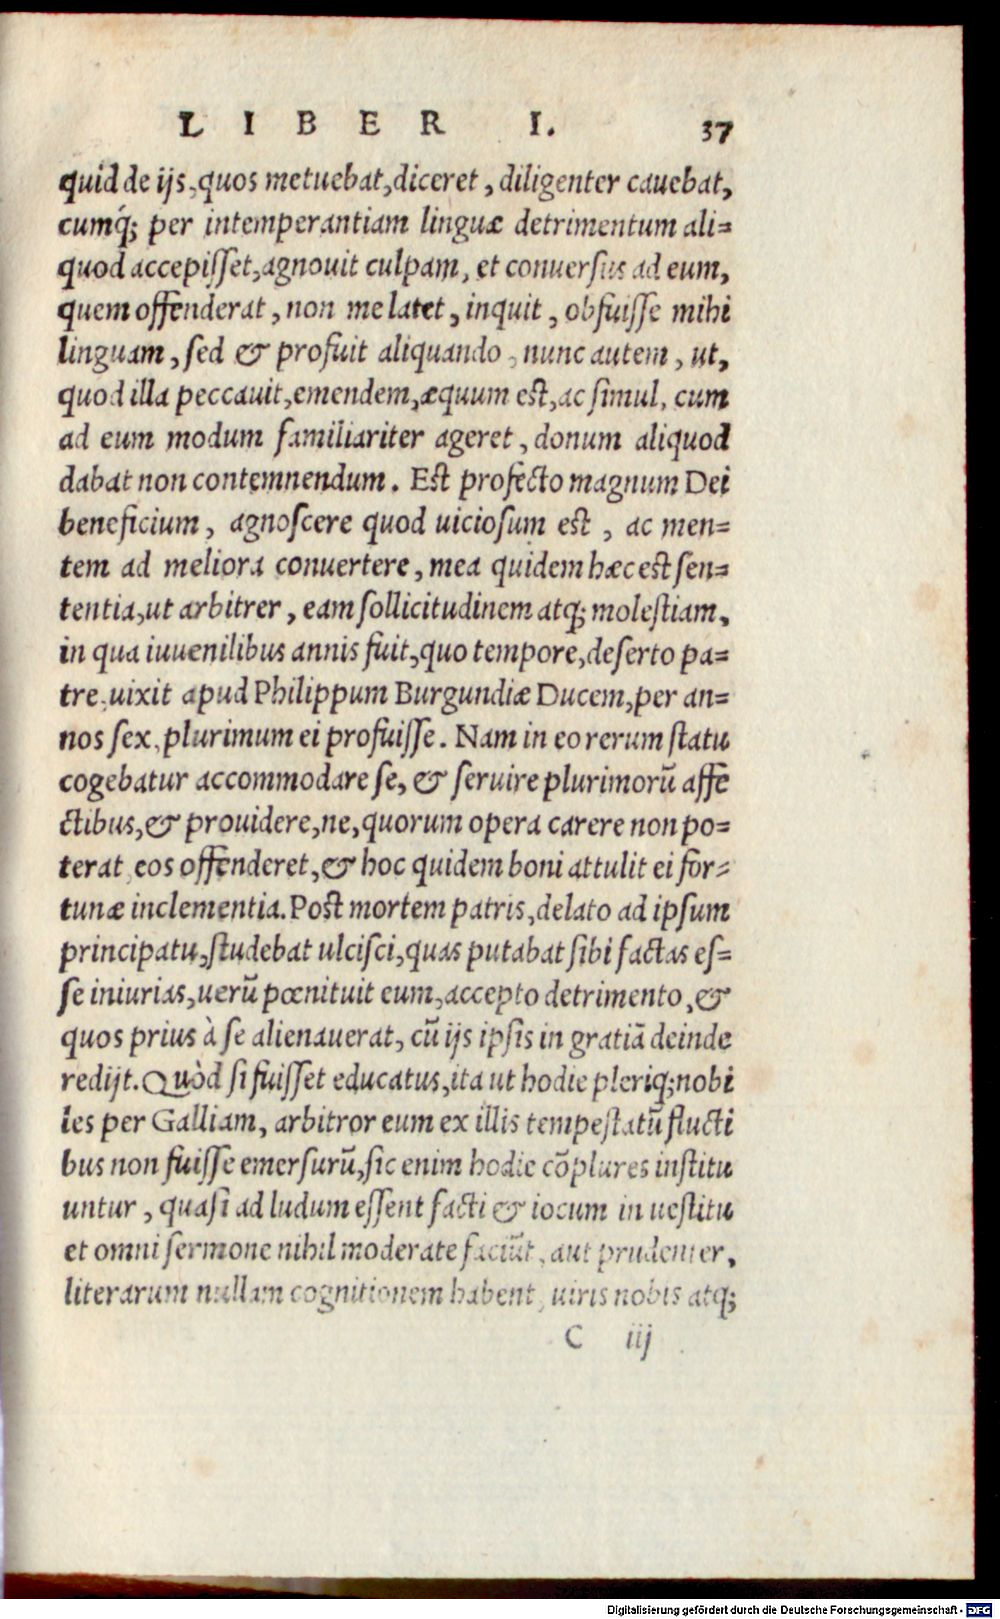 LIBER I. 37
quid de ijs, quos metuebat, diceret, diligenter cauebat,
cumq́; per intemperantiam linguæ detrimentum ali=
quod accepisset, agnouit culpam, et conuersus ad eum,
quem offenderat, non me latet, inquit, obfuisse mihi
linguam, sed & profuit aliquando, nunc autem, ut,
quod illa peccauit, emendem, æquum est, ac simul, cum
ad eum modum familiariter ageret, donum aliquod
dabat non contemnendum. Est profecto magnum Dei
beneficium, agnoscere quod uiciosum est, ac men=
tem ad meliora conuertere, mea quidem hæc est sen=
tentia, ut arbitrer, eam sollicitudinem atq; molestiam,
in qua iuuenilibus annis fuit, quo tempore, deserto pa=
tre, uixit apud Philippum Burgundiæ Ducem, per an=
nos sex, plurimum ei profuisse. Nam in eo rerum statu
cogebatur accommodare se, & seruire plurimorũ affe
ctibus, & prouidere, ne, quorum opera carere non po=
terat, eos offenderet, & hoc quidem boni attulit ei for=
tunæ inclementia. Post mortem patris, delato ad ipsum
principatu, studebat ulcisci, quas putabat sibi factas es=
se iniurias, uerũ pœnituit eum, accepto detrimento, &
quos prius à se alienauerat, cũ ijs ipsis in gratiã deinde
redijt. Quòd si fuisset educatus, ita ut hodie pleriq; nobi
les per Galliam, arbitror eum ex illis tempestatũ flucti
bus non fuisse emersurũ, sic enim hodie cõplures institu
untur, quasi ad ludum essent facti & iocum in uestitu
et omni sermone nihil moderate faciũt, aut prudenter,
literarum nullam cognitionem habent, uiris nobis atq;
C iij
Digitalisierung gefördert durch die Deutsche Forschungsgemeinschaft - DFG